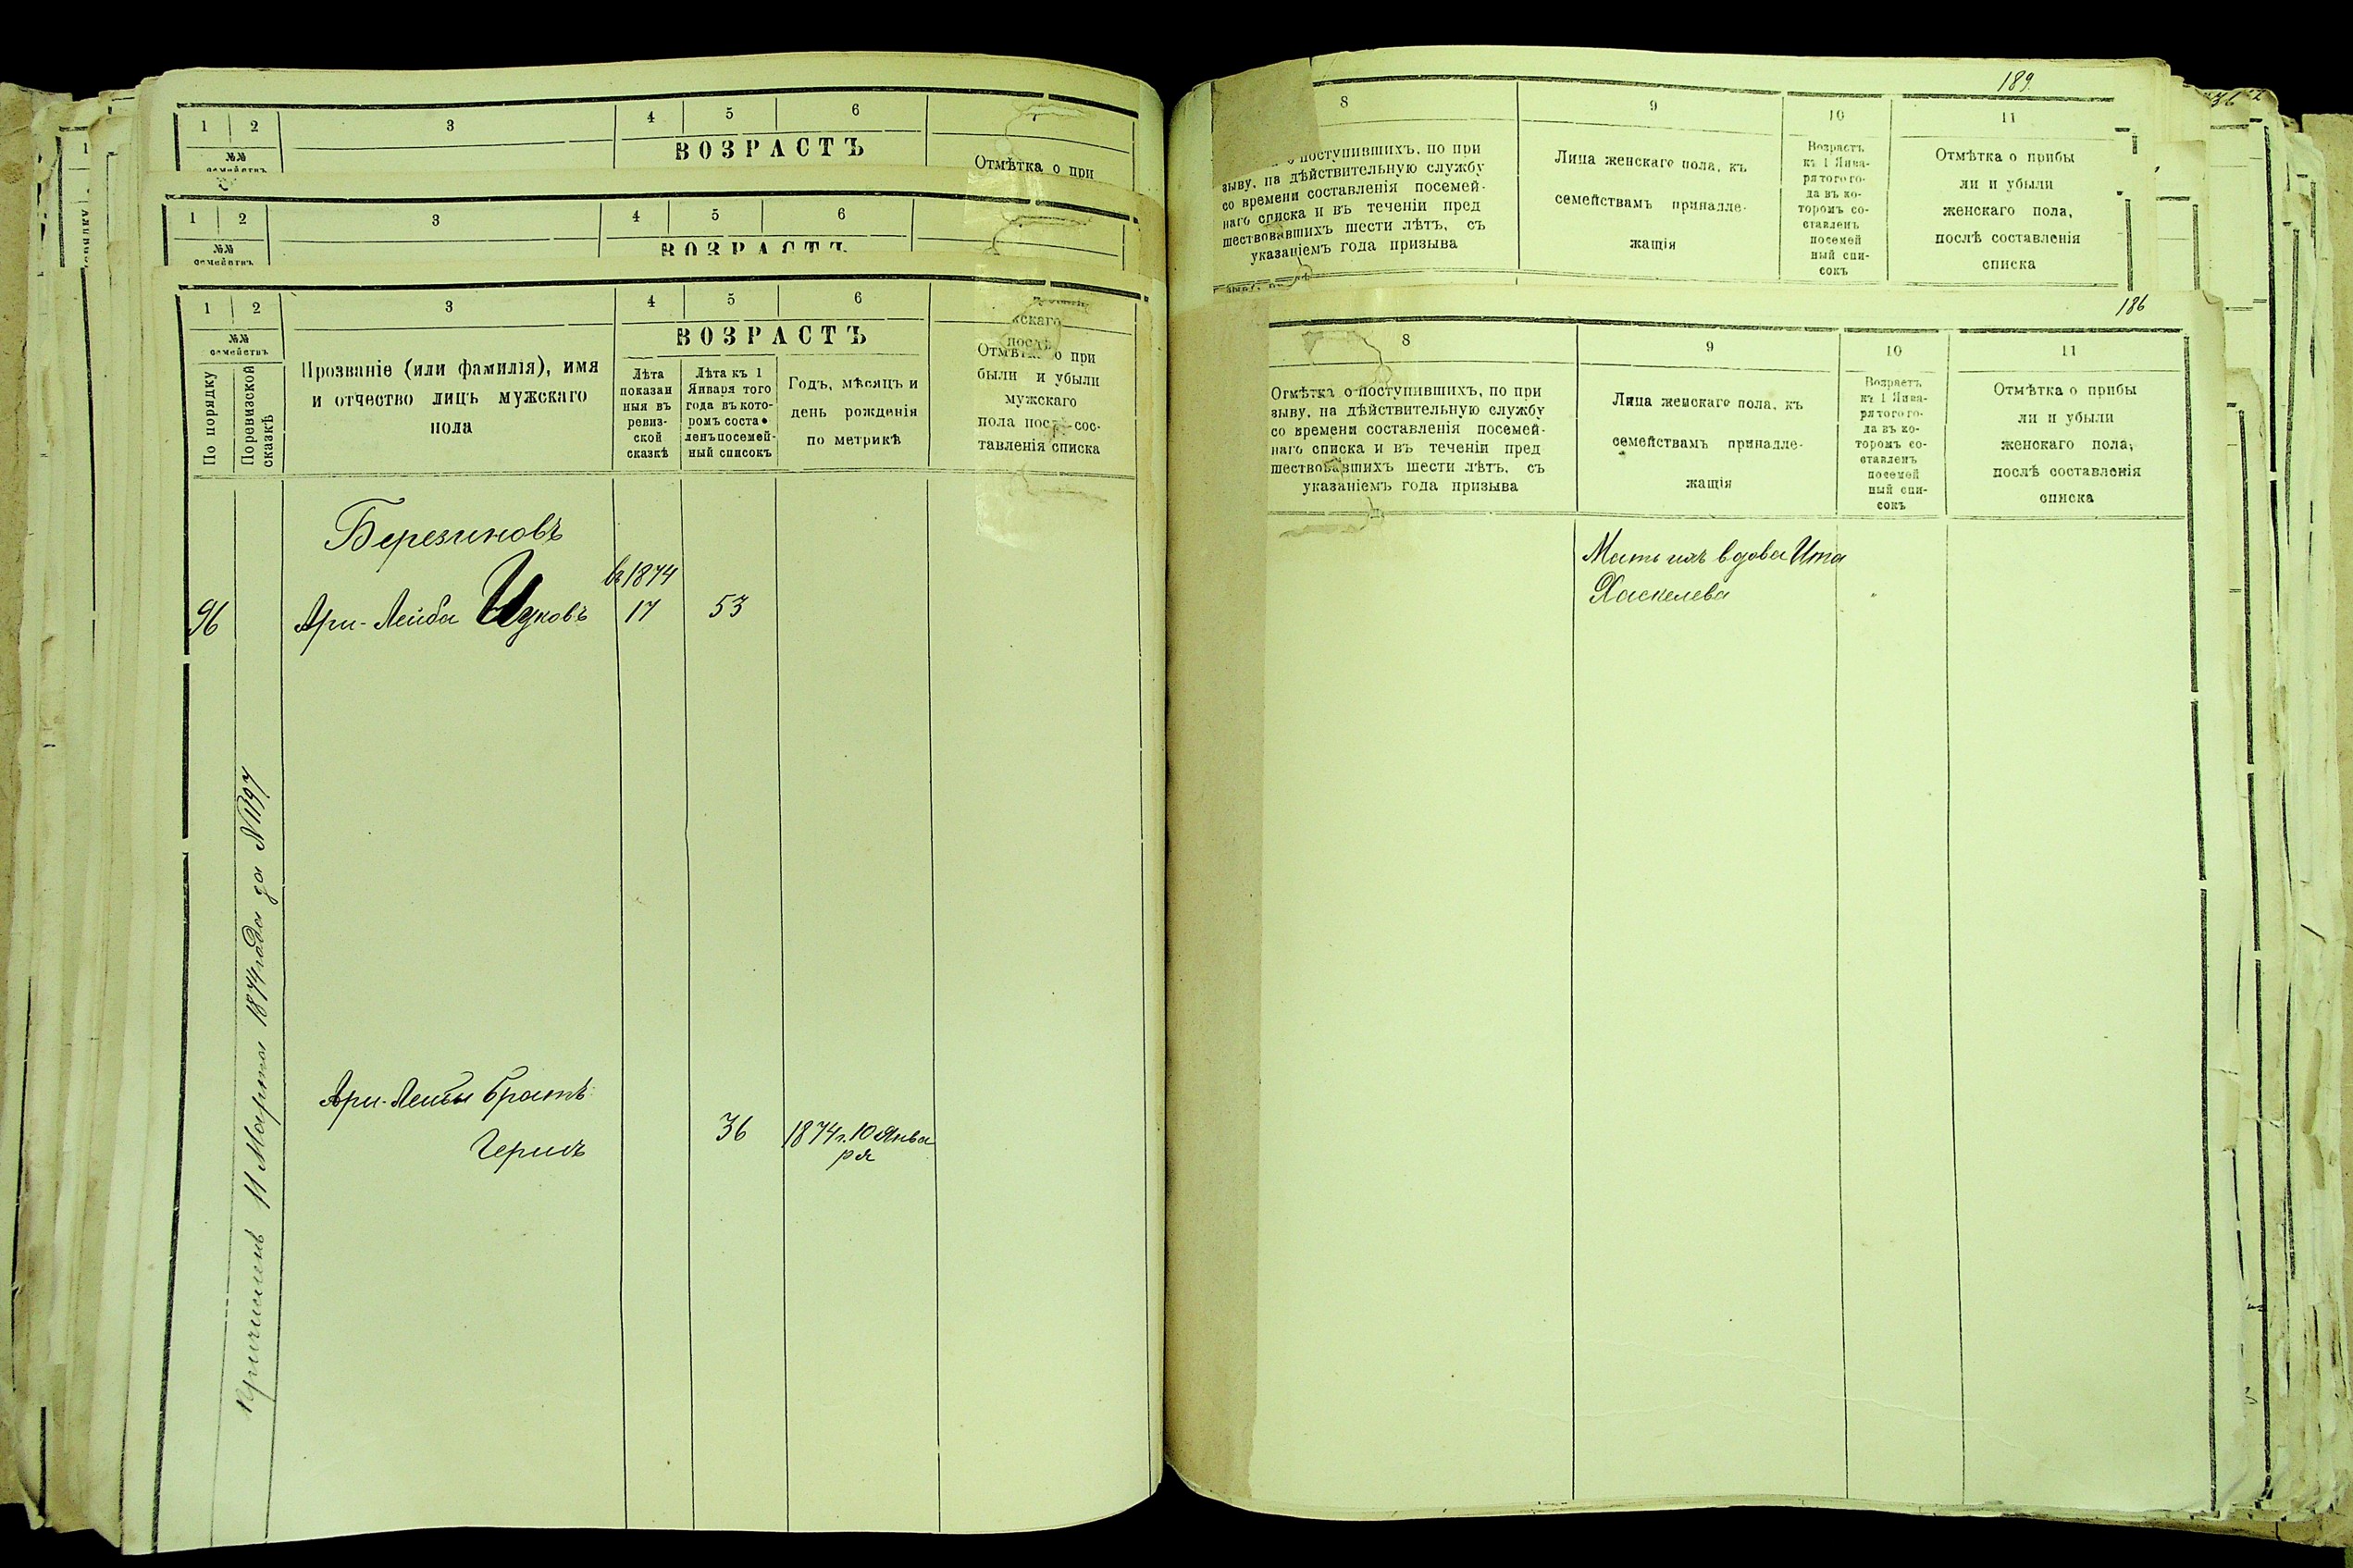 1 2 3 4 5 6
№№
семействъ
ВОЗРАСТЪ
Отмѣтка о при
1 2 3 4 5 6
№№
семействъ
ВОЗРАСТЪ
1 2 3 4 5 6
№№
семействъ
По порядку
По ревизской сказкѣ
Прозваніе (или фамилія), имя
и отчество лицъ мужскаго
пола
ВОЗРАСТЪ
Лѣта
показан
ныя въ
ревиз-
ской
сказкѣ
Лѣта къ 1
Января того
года въ кото-
ромъ соста
ленъ посемей-
ный списокъ
Годъ, мѣсяцъ и
день рожденія
по метрикѣ
Отмѣтка о при
были и убыли
мужскаго
пола послѣ сос-
тавленія списка
Березиновъ
въ 1874
96 Ари-Лейба Ицковъ 17 53
Ари-Лейбы братъ
36 1874 г. 10 Янва
ря
Причисленъ 11 Марта 1874 года за № 1197
189.
8 9 10 11
о поступившихъ, по при
зыву, на дѣйствительную службу
со времени составленія посемей-
наго списка и въ теченіи пред
шествовавшихъ шести лѣтъ, съ
указаніемъ года призыва
Лица женскаго пола, къ
семействамъ принадле-
жащія
Возрастъ
къ 1 Янва-
ря того го-
да въ ко-
торомъ со-
ставленъ
посемей
ный спи-
сокъ
Отмѣтка о прибы
ли и убыли
женскаго пола,
послѣ составленія
списка
186
8 9 10 11
Отмѣтка о поступившихъ, по при
зыву, на дѣйствительную службу
со времени составленія посемей-
наго списка и въ теченіи пред
шествовавшихъ шести лѣтъ, съ
указаніемъ года призыва
Лица женскаго пола, къ
семействамъ принадле-
жащія
Возрастъ
къ 1 Янва-
ря того го-
да въ ко-
торомъ со-
ставленъ
посемей
ный спи-
сокъ
Отмѣтка о прибы
ли и убыли
женскаго пола,
послѣ составленія
списка
Мать ихъ вдова Ита
Хаскелева